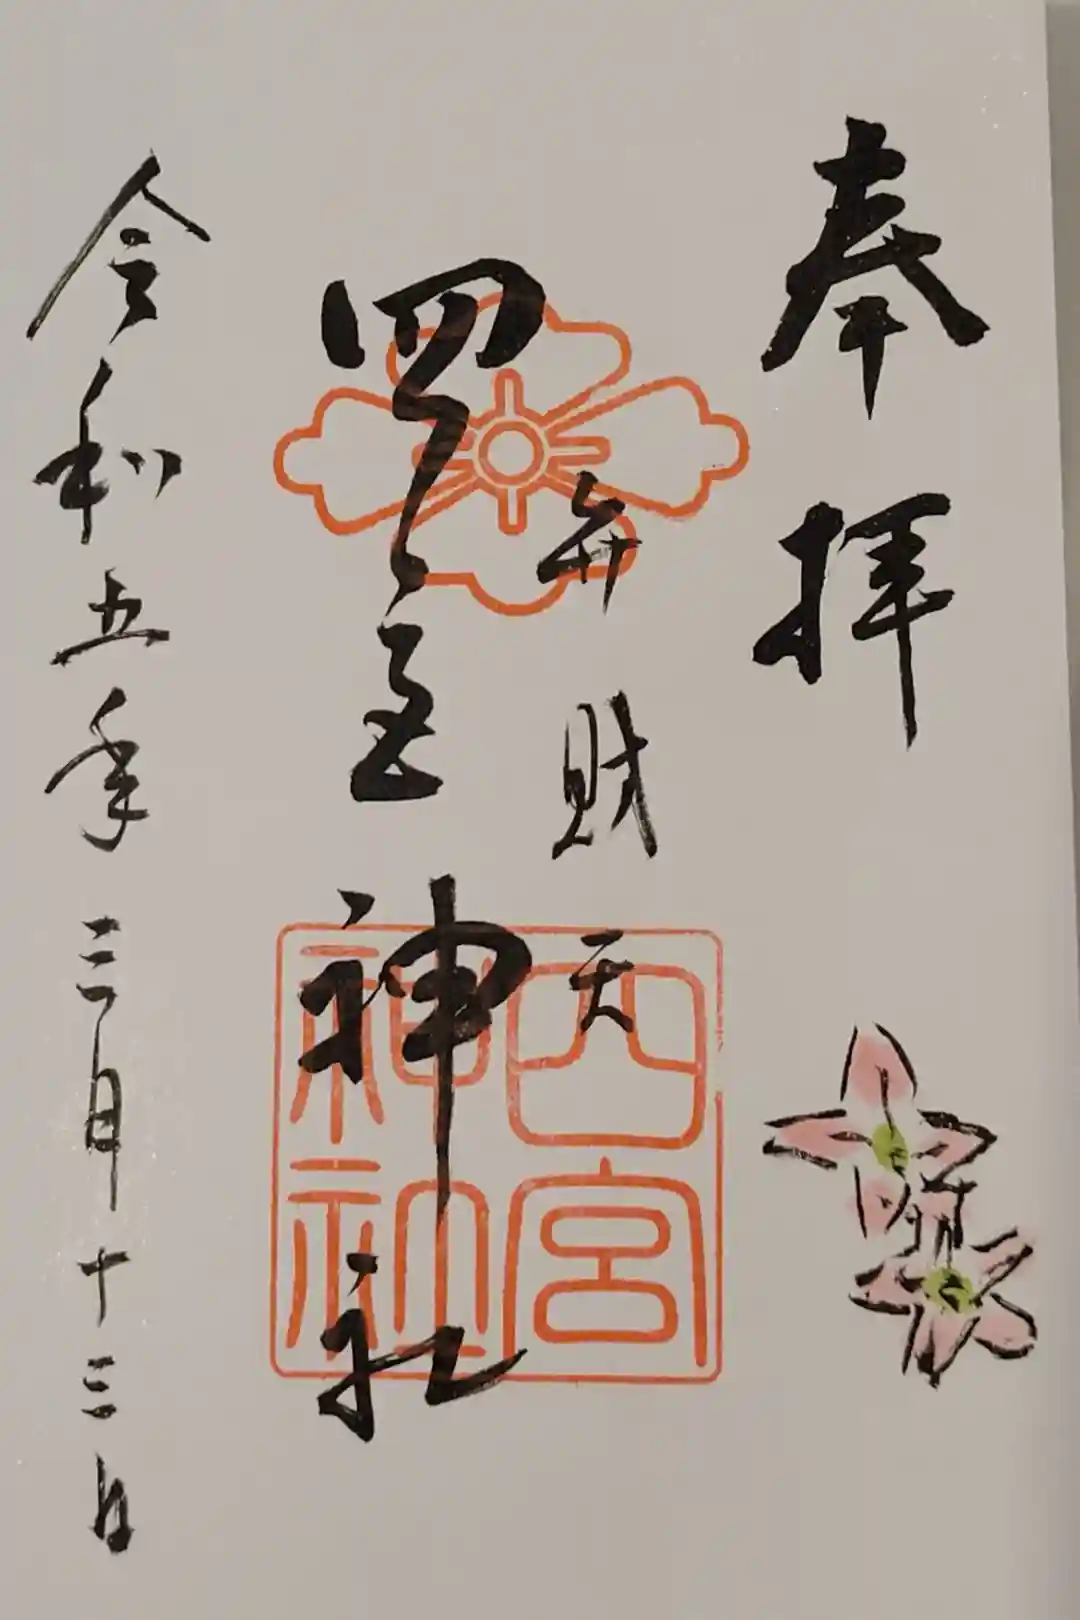 奉拝
弁財天
四宮神社
令和五年三月十三日
四宮
神社